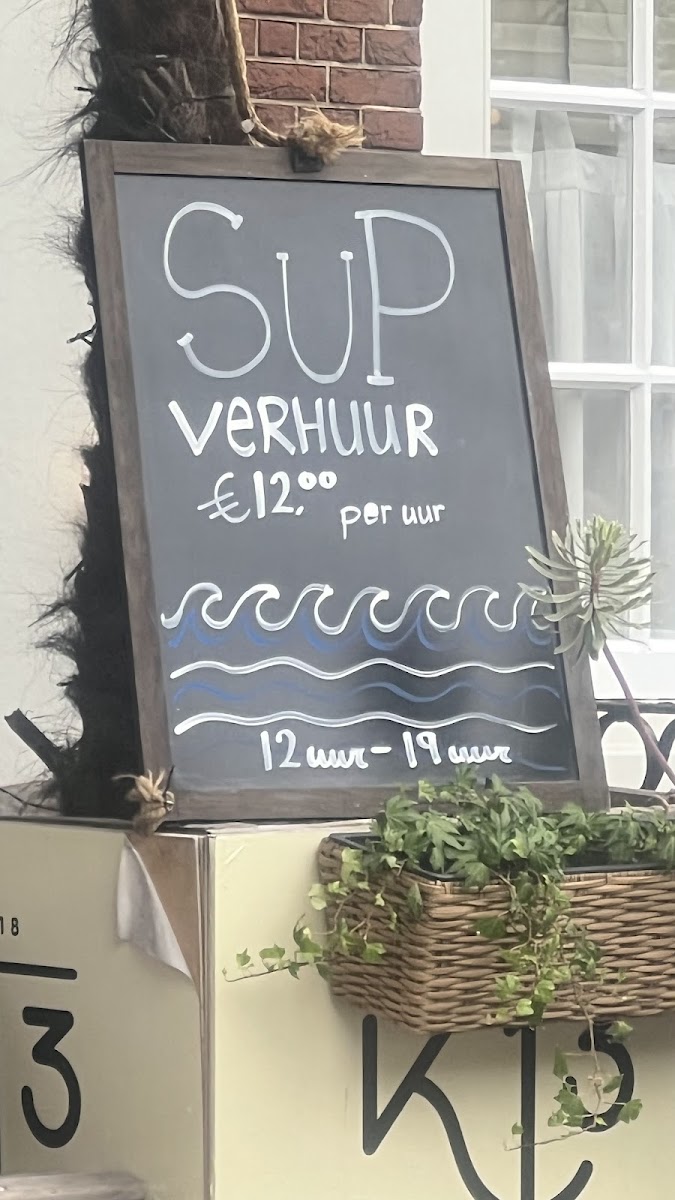 SUP
VERHUUR
€12.00 per uur
12 uur - 19 uur
18
3
K
3